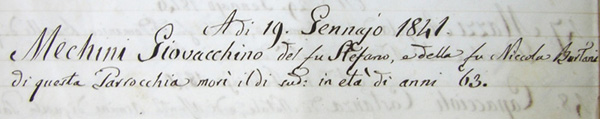 A di 19. Gennajo 1841.
Mechini Giovacchino del fu Stefano, e della fu Niccola Bartani
di questa Parrocchia morì il dì sud: in età di anni 63.